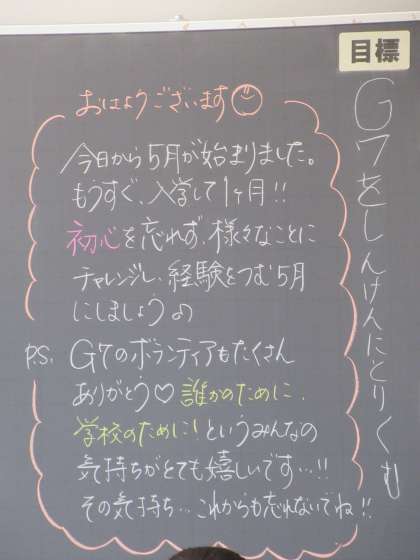 目標
G7をしんけんにとりくむ
おはようございます
今日から5月が始まりました。
もうすぐ、入学して1ヶ月!!
初心を忘れず、様々なことに
チャレンジし、経験をつむ5月
にしましょう
P.S. G7のボランティアもたくさん
ありがとう♡誰かのために、
学校のために!というみんなの
気持ちがとても嬉しいです…!!
その気持ち…これからも忘れないでね!!